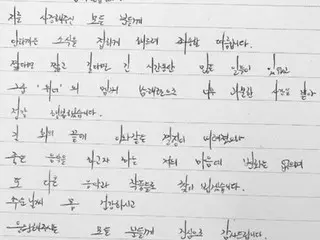 저를 사랑해주신 모든 분들께
안타까운 소식을 전하게 되어 죄송할 따름입니다.
짧다면 짧고 길다면 긴 시간동안 많은 일들이 있었고
그들 의 멤버
정말 행복했습니다.
긴 회의 끝에 이와같은 결정이 내려졌으나
좋은 음악을 하고자 하는 저의 마음에 변화는 없으며
또 다른 음악과 작품들로 찾아 뵙겠습니다.
부디 몸 건강하시고
응원해주시는 모든 분들께 진심으로 감사드립니다.